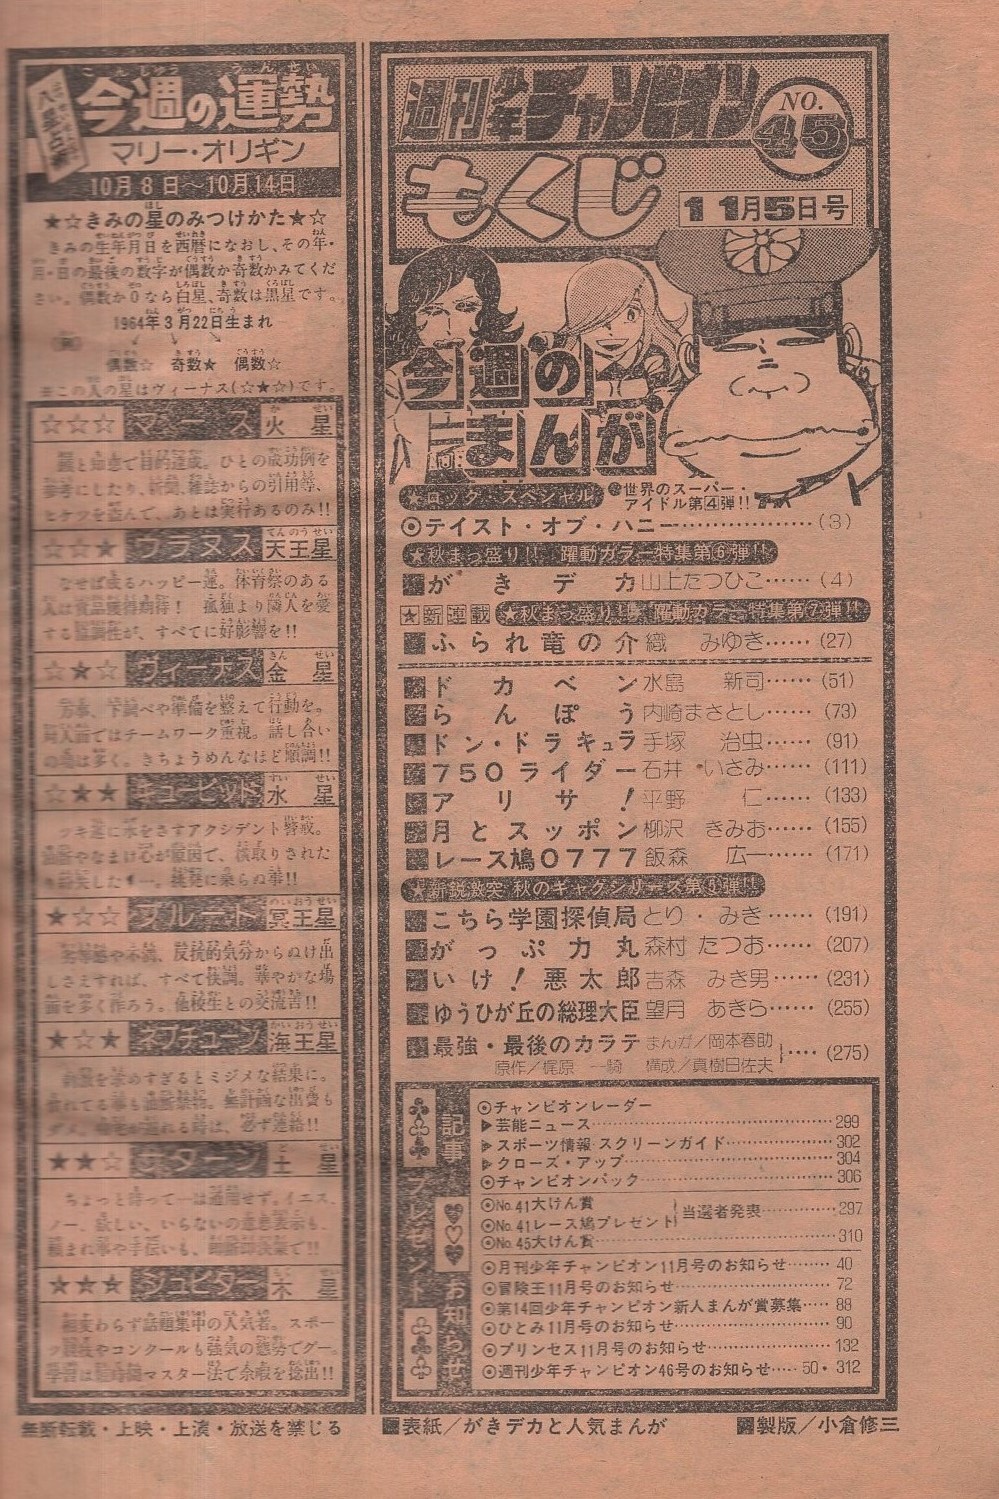 週刊少年チャンピオン
NO.45
もくじ
11月5日号
今週のまんが
★ロック・スペシャル
●世界のスーパー・アイドル第4弾!!
◉テイスト・オブ・ハニー………………(3)
★秋まっ盛り!! 躍動カラー特集第⑥弾!!
がきデカ 山上たつひこ……(4)
★新連載 ★秋まっ盛り!! 躍動カラー特集第⑦弾!!
ふられ竜の介 織 みゆき……(27)
ドカベン 水島 新司……(51)
らんぽう 内崎まさとし……(73)
ドン・ドラキュラ 手塚 治虫……(91)
750ライダー 石井 いさみ……(111)
アリサ! 平野 仁……(133)
月とスッポン 柳沢 きみお……(155)
レース鳩0777 飯森 広一……(171)
★新鋭激突 秋のギャグシリーズ第⑤弾!!
こちら学園探偵局 とり・みき……(191)
がっぷ力丸 森村 たつお……(207)
いけ!悪太郎 吉森 みき男……(231)
ゆうひが丘の総理大臣 望月 あきら……(255)
最強・最後のカラテ まんが/岡本春助
原作/梶原 一騎 構成/真樹日佐夫 ……(275)
記事 プレゼント お知らせ
◉チャンピオンレーダー
▶芸能ニュース……299
▶スポーツ情報 スクリーンガイド……302
▶クローズ・アップ……304
◉チャンピオンパック……306
◉No.41大けん賞
◉No.41レース鳩プレゼント 当選者発表……297
◉No.45大けん賞……310
◉月刊少年チャンピオン11月号のお知らせ……40
◉冒険王11月号のお知らせ……72
◉第14回少年チャンピオン新人まんが賞募集……88
◉ひとみ11月号のお知らせ……90
◉プリンセス11月号のお知らせ……132
◉週刊少年チャンピオン46号のお知らせ……50・312
表紙/がきデカと人気まんが
製版/小倉修三
今週の運勢
マリー・オリギン
10月8日〜10月14日
★☆きみの星のみつけかた★☆
きみの生年月日を西暦になおし、その年・
月・日の最後の数字が偶数か奇数かみてくだ
さい。偶数か0なら白星、奇数は黒星です。
1964年3月22日生まれ
偶数☆ 奇数★ 偶数☆
※この人の星はヴィーナス(☆★☆)です。
☆☆☆ マース 火星
と知恵で目的達成。ひとの成功例を
参考にしたり、新聞、雑誌からの引用等、
ヒケツを盗んで、あとは実行あるのみ!!
☆☆★ ウラヌス 天王星
なせば成るハッピー運。体育祭のある
人は賞品獲得期待! 孤独より隣人を愛
する協調性が、すべてに好影響を!!
☆★☆ ヴィーナス 金星
下調べや準備を整えて行動を。
対人面ではチームワーク重視。話し合い
の場は多く。きちょうめんなほど順調!!
☆★★ キューピッド 水星
ツキ運に水をさすアクシデント警戒。
油断やなまけ心が原因で、横取りされた
★☆☆ プルート 冥王星
劣等感や不満、反抗的気分からぬけ出
しさえすれば、すべて快調。華やかな場
面を多く作ろう。他校生との交流吉!!
★☆★ ネプチューン 海王星
刺激を求めすぎるとミジメな結果に。
慣れてる事も油断禁物。無計画な出費も
★★☆ サターン 土星
ちょっと待って—は通用せず。イエス、
ノー、欲しい、いらないの意思表示も、
頼まれ事や手伝いも、即断即決策で!!
★★★ ジュピター 木星
相変わらず話題集中の人気者。スポー
ツ競技やコンクールも強気の態勢でグー。
学習は短時間マスター法で余暇を捻出!!
無断転載・上映・上演・放送を禁じる